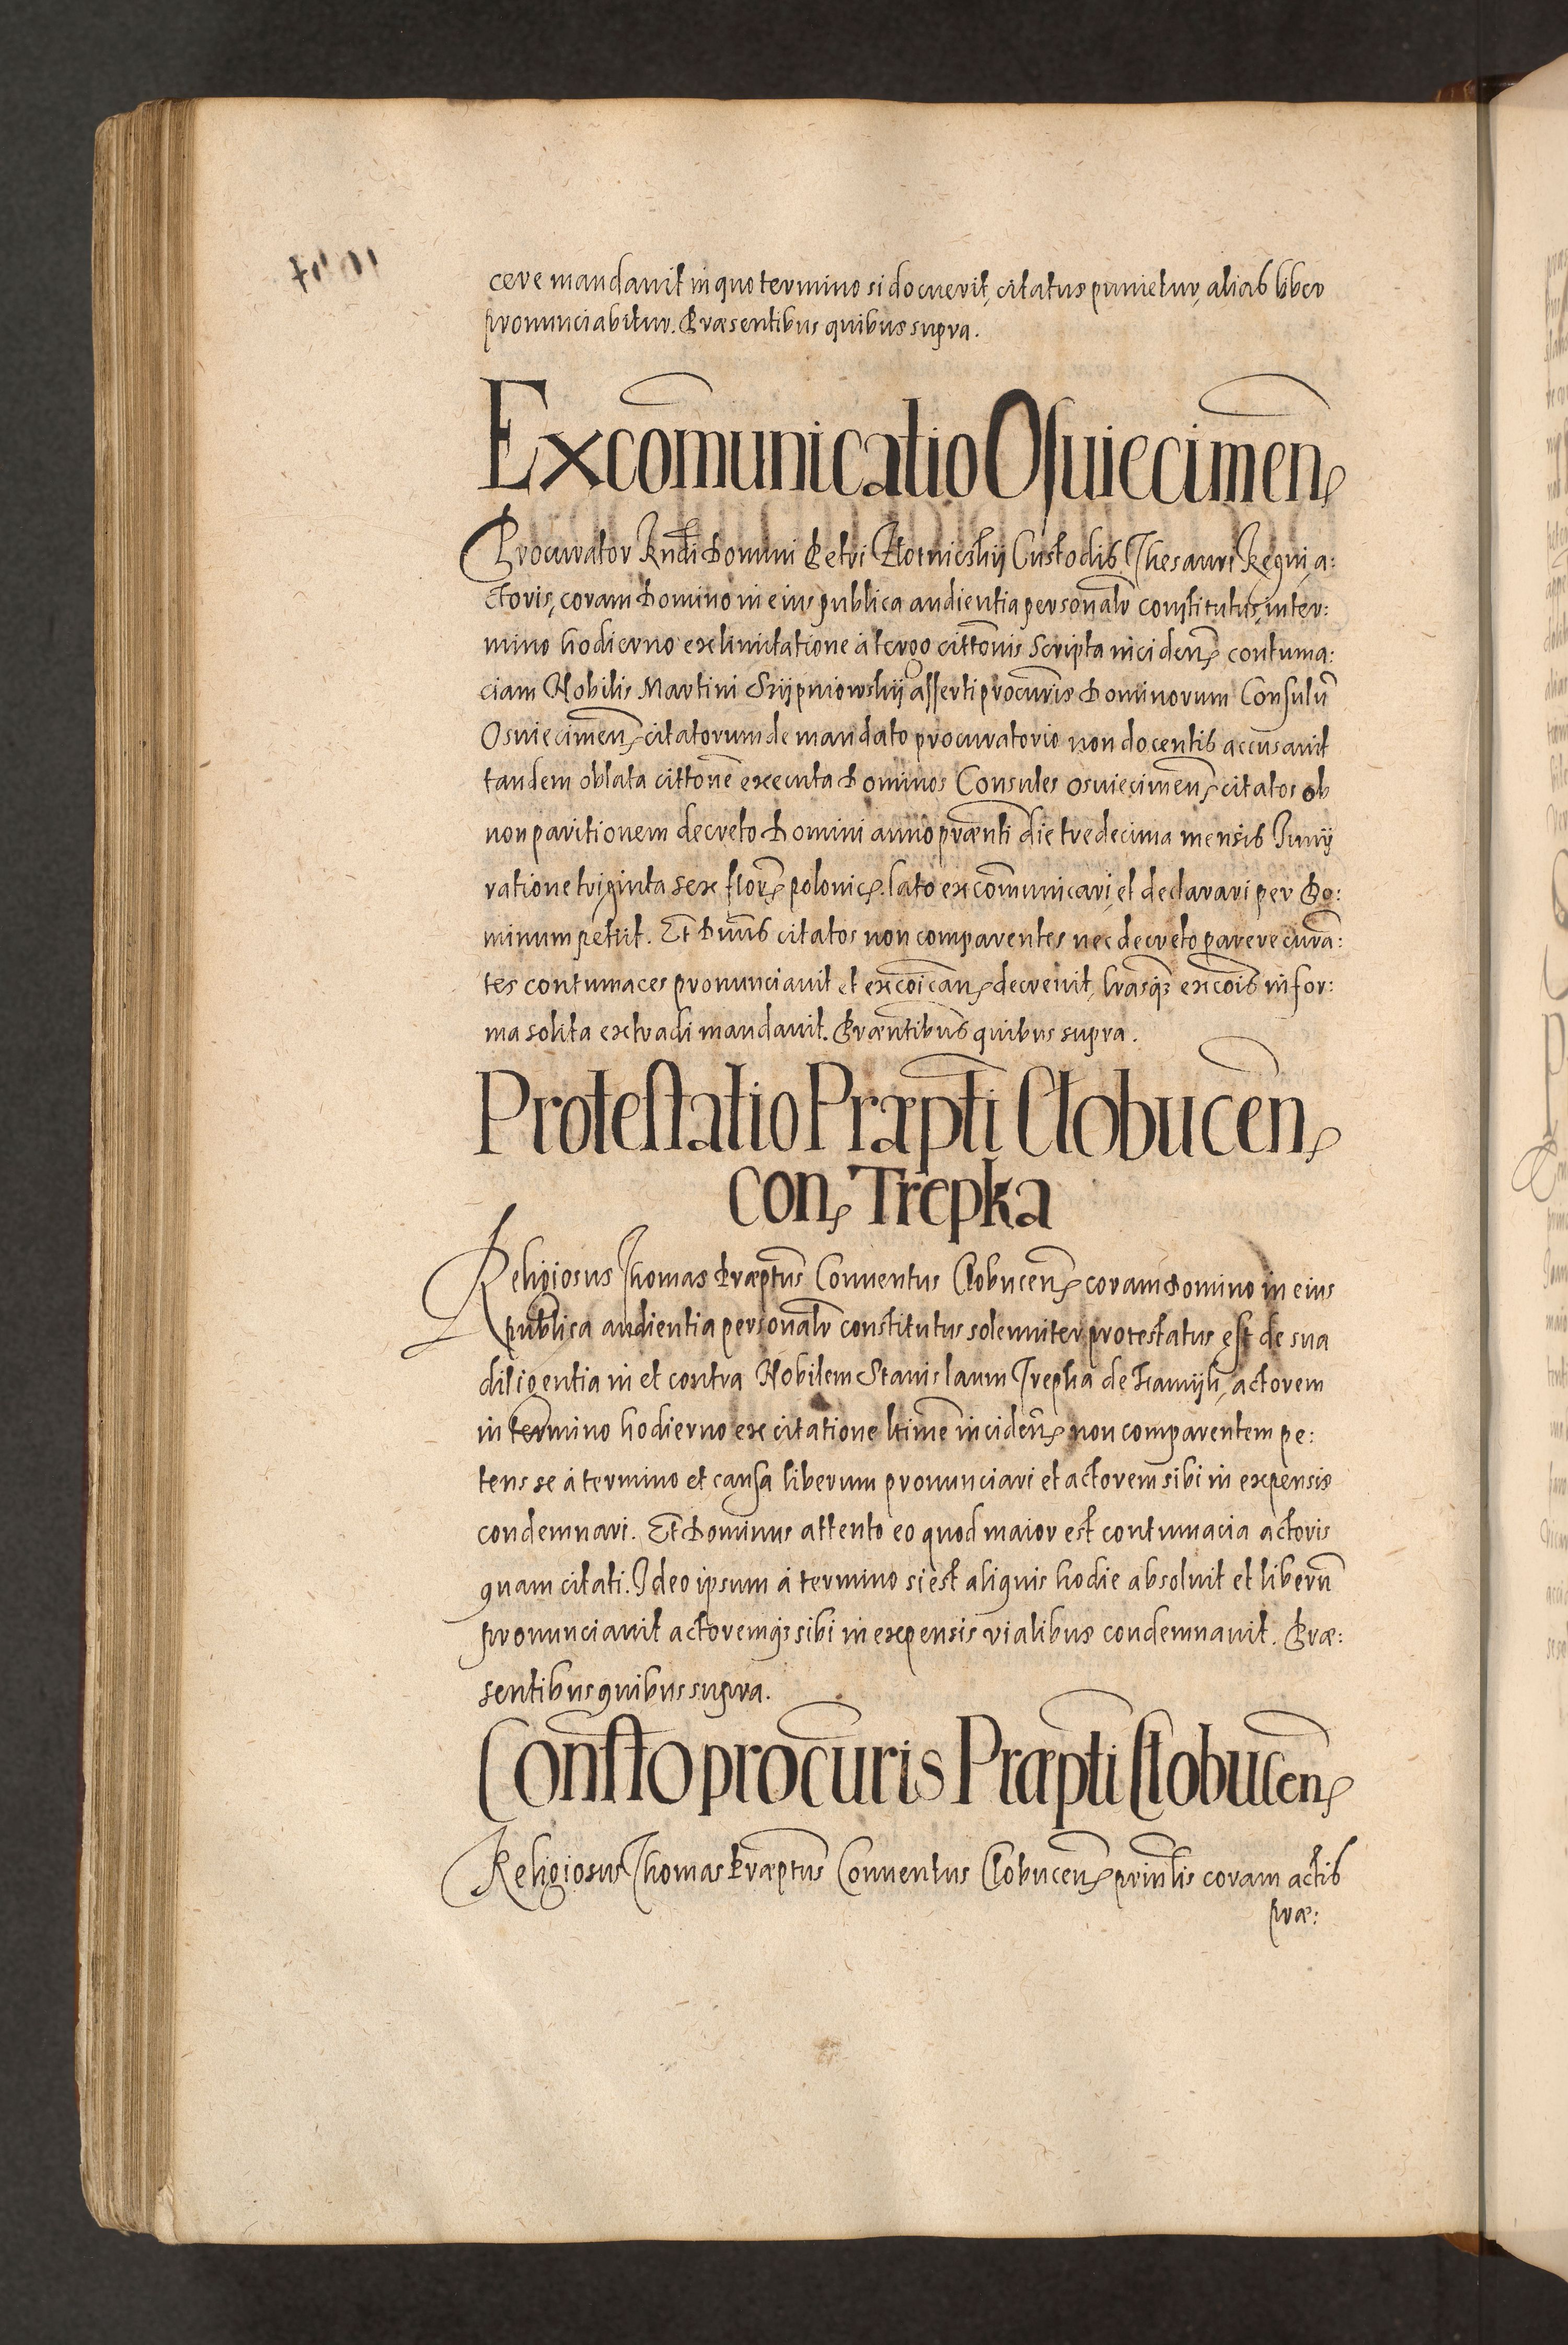 cere mandavit in quo termino si docuerit, citatus punietur, alias liber
pronunciabitur. Præsentibus quibus supra.
Excom̄unicatio Osuiecimen̄
Procurator Rn̄di Domini Petri Custodis Thesauri Regni, a:
ctoris, coram Domino in eius publica audientia personalr̄ constitutus, in ter:
mino hodierno ex limitatione à tergo citt̄onis scripta inciden̄ contuma:
ciam Nobilis Martini Skypniowskij asserti procur̄is Dominorum Consulū
Osuiecimen̄ citatorum de mandato procuratorio non docentis accusavit
tandem oblata citt̄one executa Dominos Consules Osuiecimen̄ citatos ob
non paritionem decreto Domini anno præn̄ti die tredecima mensis Junij
ratione triginta sex flor̄ polonic̄. lato excom̄unicari, et declarari per Do:
minum petiit. Et Dn̄us citatos non comparentes nec decreto parere curā:
tes contumaces pronunciavit et exc̄oican̄ decrevit, lr̄asq̄ exc̄ois in for:
ma solita extradi mandavit. Præn̄tibus quibus supra.
Protestatio Præpt̄i Clobucen̄
con̄ Trepka
Religiosus Thomas Præpt̄us Conventus Clobucen̄ coram Domino in eius
publica audientia personalr̄ constitutus solenniter protestatus est de sua
diligentia in et contra Nobilem Stanislaum Trepka de actorem
in termino hodierno ex citatione ltīme inciden̄ non comparentem pe:
tens se à termino et causa liberum pronunciari et actorem sibi in expensis
condemnari. Et Dominus attento eo quod maior est contumacia actoris
quam citati. Ideo ipsum à termino si est aliquis hodie absolvit et liberū
pronunciavit actoremq̄ sibi in expensis vialibus condemnavit. Præ:
sentibus quibus supra.
Const̄o procur̄is Præpt̄i Clobucen̄
Religiosus Thomas Præpt̄us Conventus Clobucen̄ prin̄lis coram actis
præ: